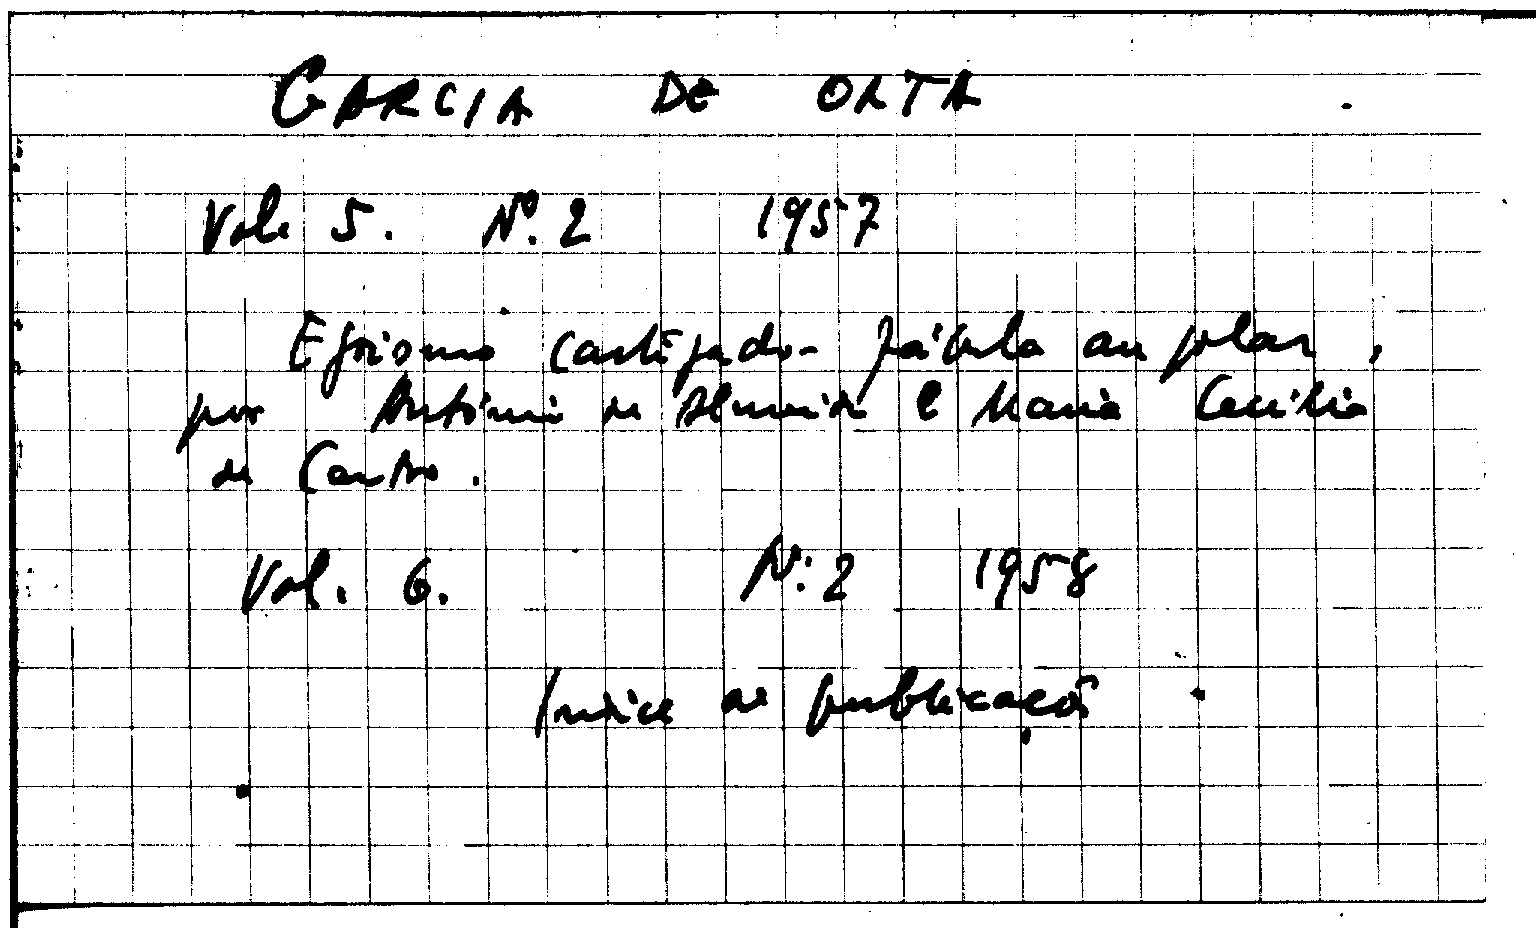 GARCIA DE ORTA
Vol. 5. Nº. 2 1957
Egoismo castigado - fábula angolar,
por António de Almeida e Maria Cecília
de Castro.
Vol. 6. Nº. 2 1958
Indice de publicação